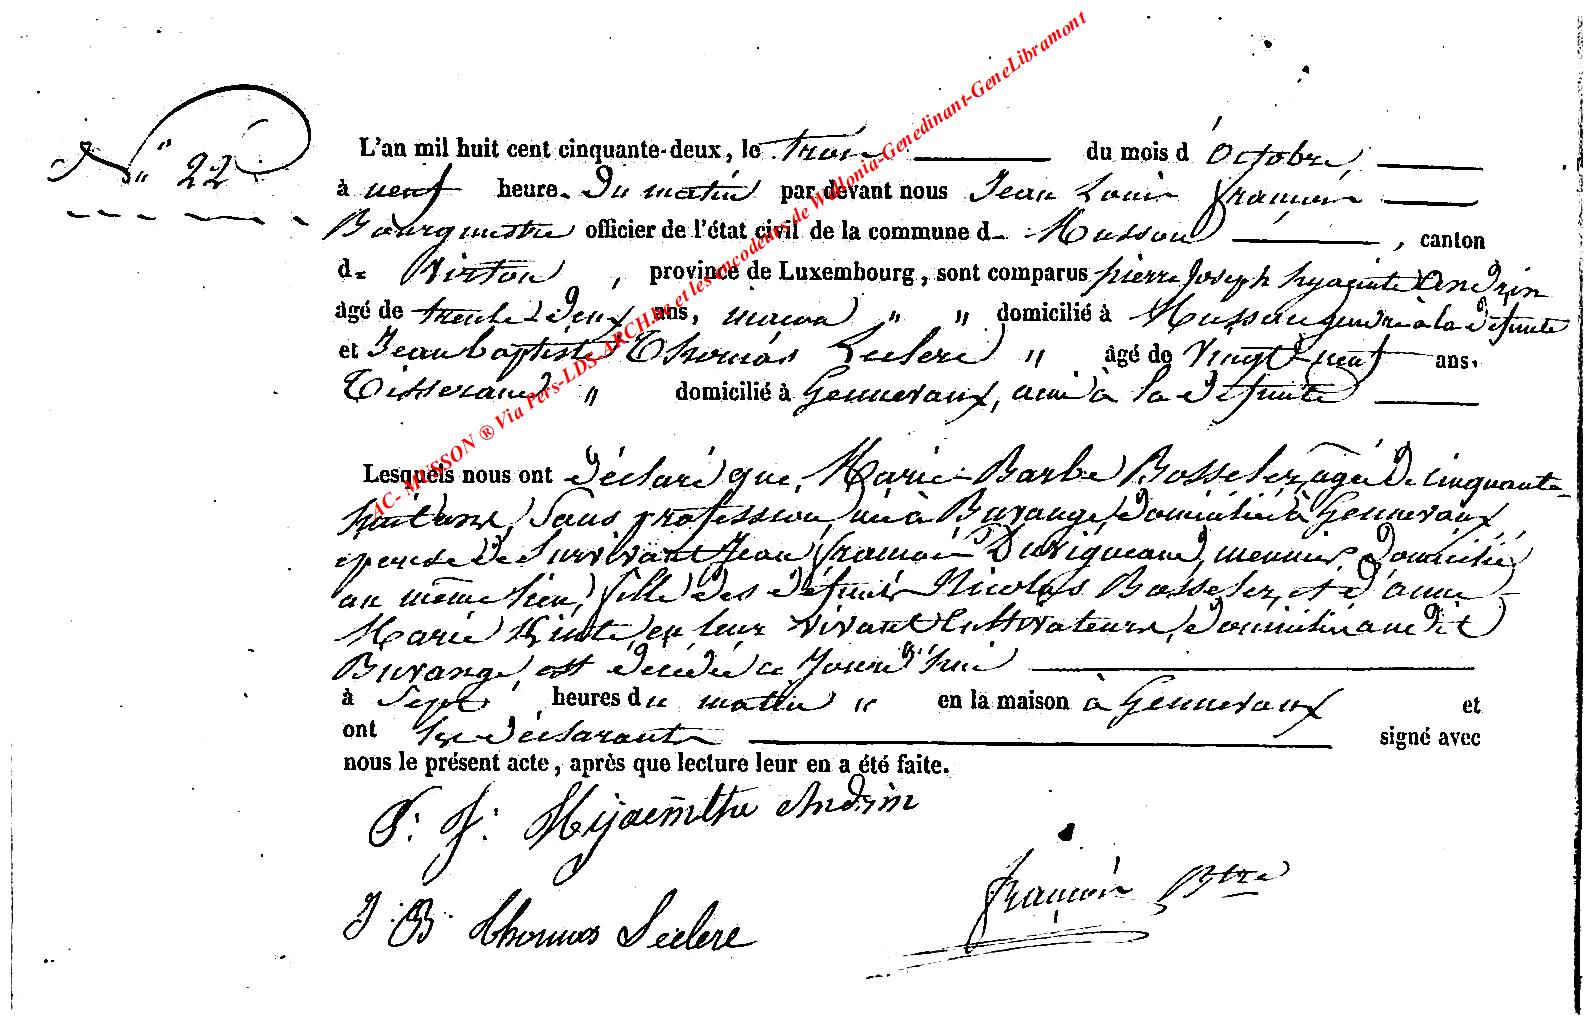 N° 22
L'an mil huit cent cinquante-deux, le trois du mois d'Octobre,
à neuf heure. du matin par devant nous Jean Louis François
Bourgmestre officier de l'état civil de la commune de Musson, canton
de Virton, province de Luxembourg, sont comparus pierre Joseph hyacinte Andrin
âgé de trente deux ans, maçon " " domicilié à Musson gendre à la défunte
et Jean baptiste Thomas Leclere " âgé de Vingt neuf ans.
Tisserand " domicilié à Gennevaux, ami à la défunte
Lesquels nous ont déclaré que, Marie-Barbe Bosseler, agée de cinquante-
huit ans, Sans profession, née à Buvange, domiciliée à Gennevaux,
epouse de Survivant Jean françois meunier, domicilié
au même lieu, fille des défunts Nicolas Bosseler, et d'anne-
Marie en leur vivant Cultivateurs, domiciliés audit
Buvange, est décédée ce Jourd'hui
à Sept heures du matin " en la maison à Gennevaux et
ont les déclarants signé avec
nous le présent acte, après que lecture leur en a été faite.
P: J: Hijacinthe Andrin
J. B. thomas Leclere
françois Btre
AC- MUSSON ® Via Pers-LDS-ARCH.be et les encodeurs de Wallonia-Genedinant-GeneLibramont